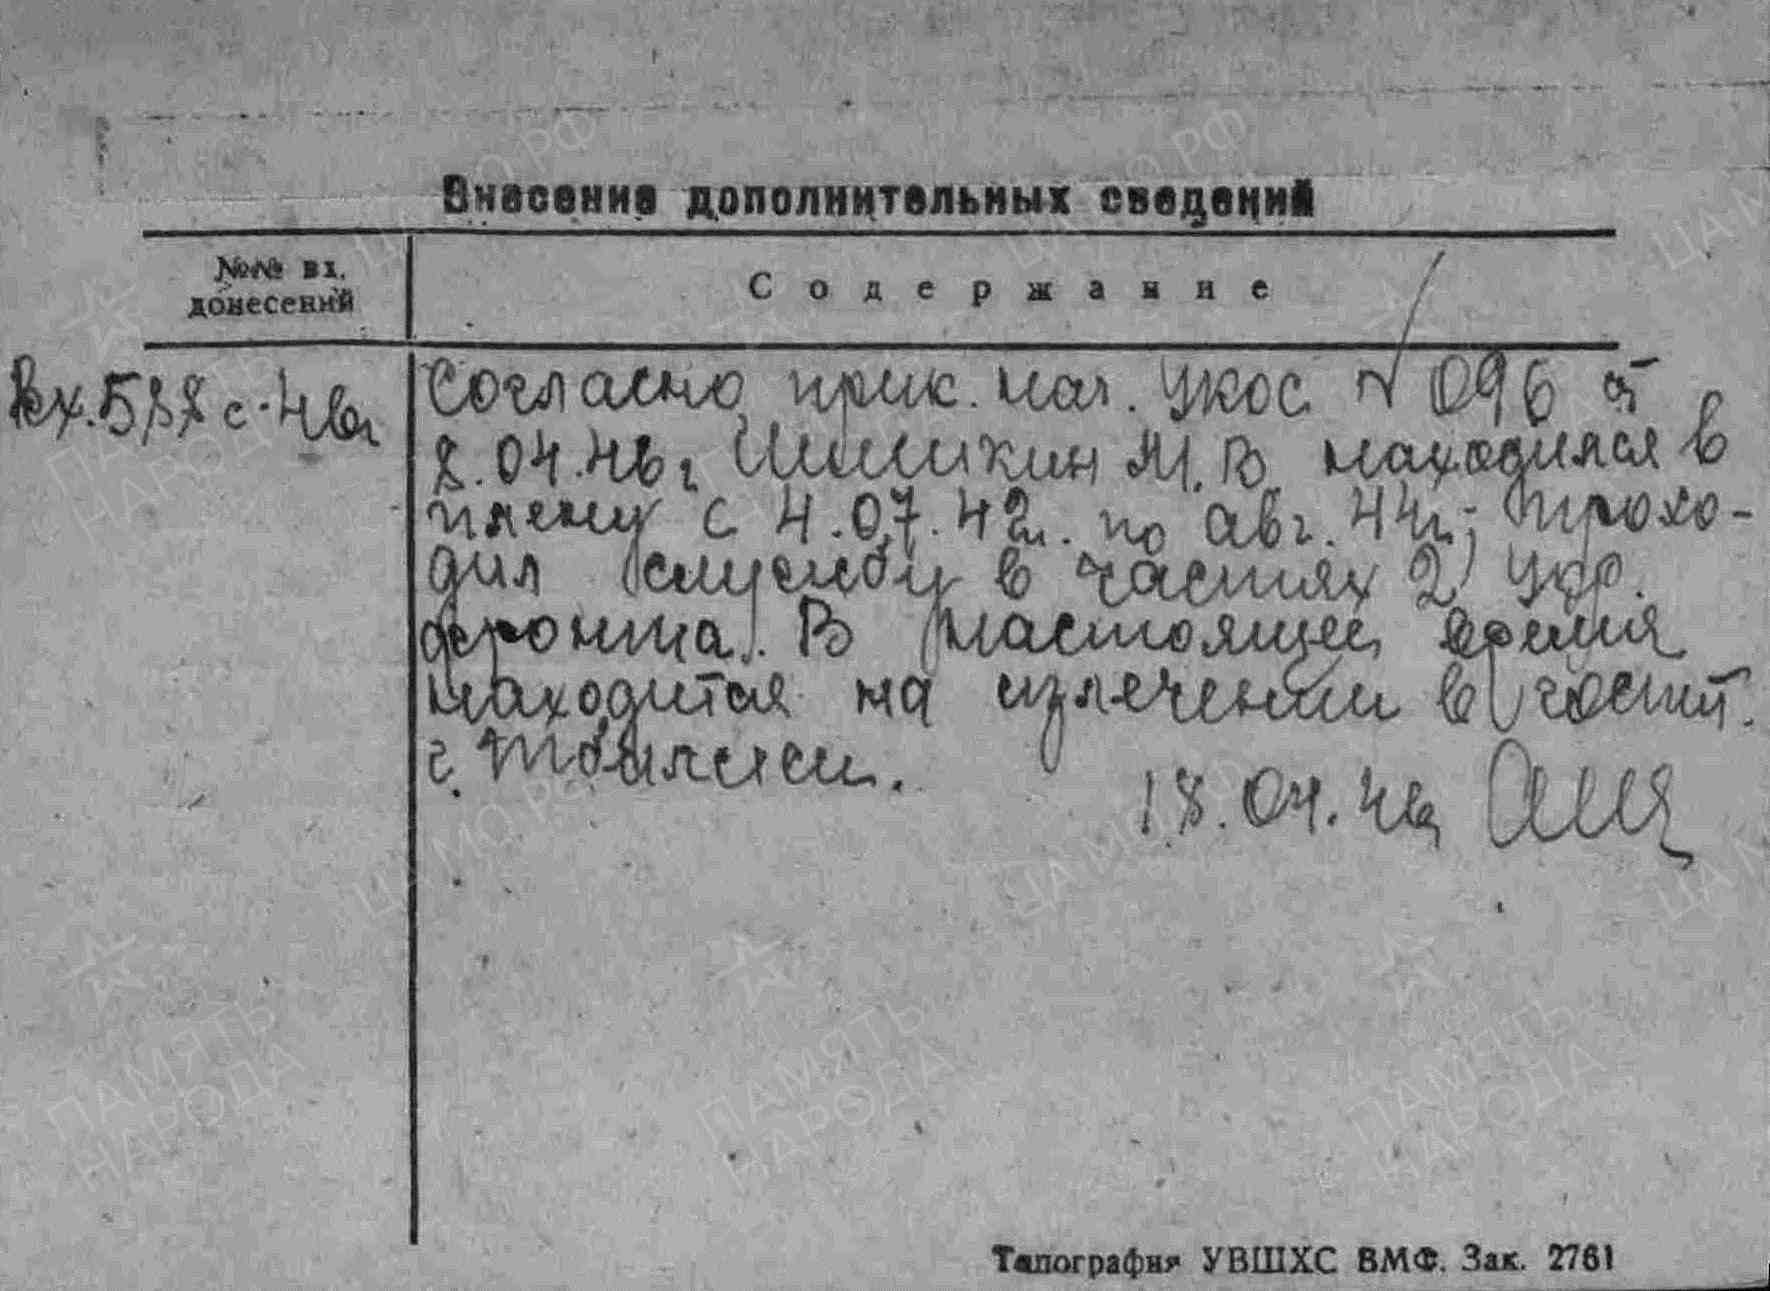 Внесение дополнительных сведений
№№ вх.
донесений
Содержание
Вх. 588 с. 46г
Согласно прик. нач. УКОС № 096 от
8.04.46г Шишкин М.В. находился в
плену с 4.07.42г. по авг. 44г.; прохо-
дил службу в частях 2 Укр.
фронта. В настоящее время
находится на излечении в госпит.
г. Тбилиси.
18.04.46г
Типография УВШХС ВМФ. Зак. 2761
ЦА МО РФ
ПАМЯТЬ
НАРОДА